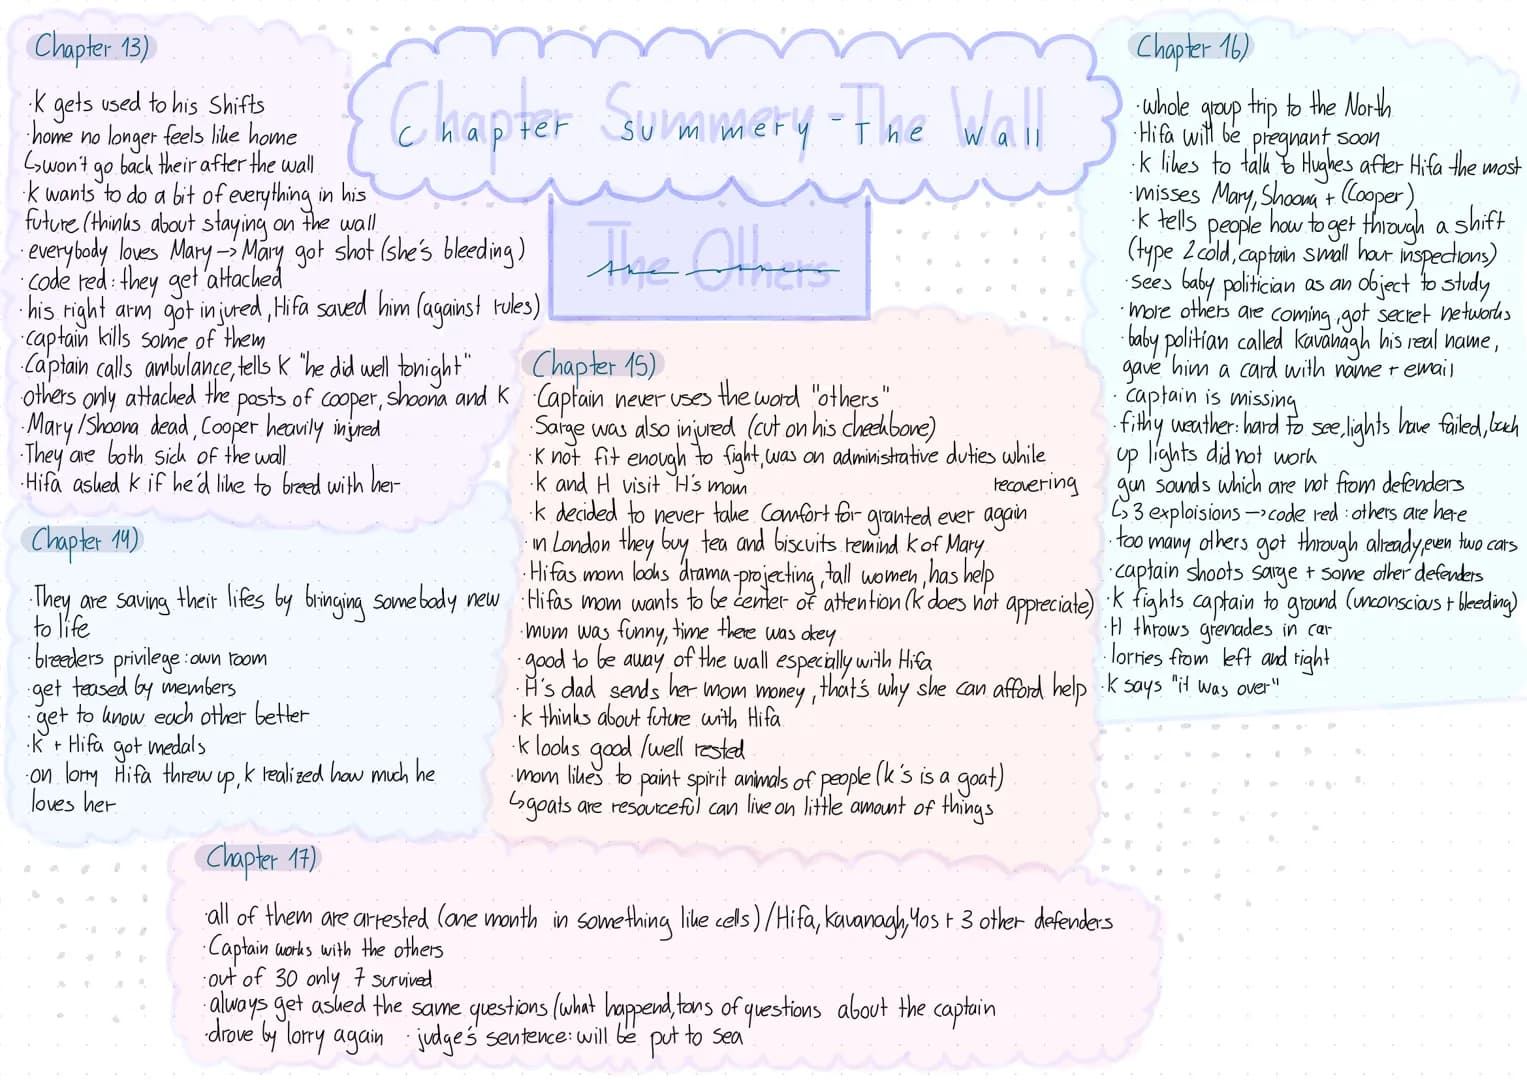 Chapter Summery - The Wall
The Others
Chapter 13)
·K gets used to his Shifts
·home no longer feels like home
↳won't go back their after the wall
·K wants to do a bit of everything in his
future (thinks about staying on the wall
·everybody loves Mary → Mary got shot (she's bleeding)
·code red: they get attacked
·his right arm got injured, Hifa saved him (against rules)
·captain kills some of them
·Captain calls ambulance, tells K "he did well tonight"
·others only attacked the posts of cooper, shoona and K
·Mary/Shoona dead, Cooper heavily injured
·They are both sick of the wall
·Hifa asked K if he'd like to breed with her
Chapter 14)
·They are saving their lifes by bringing somebody new
to life
·breeders privilege: own room
·get teased by members
·get to know each other better
·K + Hifa got medals
·on lorry Hifa threw up, K realized how much he
loves her
Chapter 15)
·Captain never uses the word "others"
·Sarge was also injured (cut on his cheekbone)
·K not fit enough to fight, was on administrative duties while
recovering
·K and H visit H's mom
·K decided to never take Comfort for granted ever again
·in London they buy tea and biscuits remind K of Mary
·Hifas mom looks drama-projecting, tall women, has help
·Hifas mom wants to be center of attention (K does not appreciate)
·mum was funny, time there was okey
·good to be away of the wall especially with Hifa
·H's dad sends her mom money, that's why she can afford help
·K thinks about future with Hifa
·K looks good/well rested
·mom likes to paint spirit animals of people (K's is a goat)
↳goats are resourceful can live on little amount of things
Chapter 16)
·whole group trip to the North
·Hifa will be pregnant soon
·K likes to talk to Hughes after Hifa the most
·misses Mary, Shoona + (Cooper)
·K tells people how to get through a shift
(type 2 cold, captain small hour inspections)
·sees baby politician as an object to study
·more others are coming, got secret networks
·baby politian called Kavanagh his real name,
gave him a card with name + email
·captain is missing
·fithy weather: hard to see, lights have failed, back
up lights did not work
gun sounds which are not from defenders
↳3 exploisions → code red: others are here
·too many others got through already, even two cars
·captain shoots sarge + some other defenders
·K fights captain to ground (unconscious + bleeding)
·H throws grenades in car
·lorries from left and right
·K says "it was over"
Chapter 17)
·all of them are arrested (one month in something like cells)/Hifa, Kavanagh, Yos + 3 other defenders
·Captain works with the others
·out of 30 only 7 survived
·always get asked the same questions (what happend, tons of questions about the captain
·drove by lorry again ·judge's sentence: will be put to sea